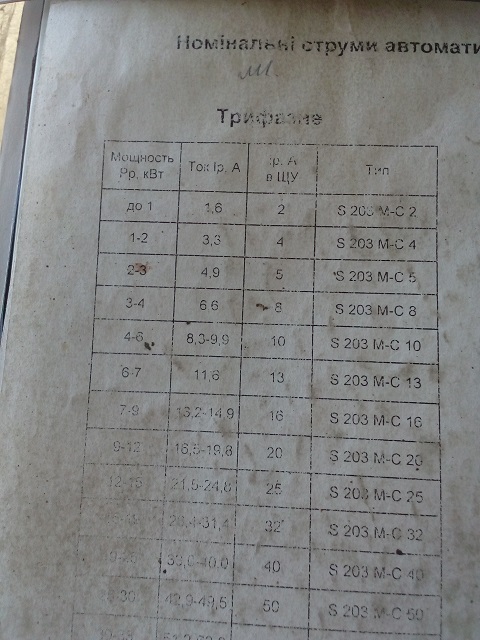 Номінальні струми автомати
Трифазне
Мощность Рр, кВт Ток Ір, А Ір, А в ЩУ Тип
до 1 1,6 2 S 203 M-C 2
1-2 3,3 4 S 203 M-C 4
2-3 4,9 5 S 203 M-C 5
3-4 6,6 8 S 203 M-C 8
4-6 8,3-9,9 10 S 203 M-C 10
6-7 11,6 13 S 203 M-C 13
7-9 13,2-14,9 16 S 203 M-C 16
9-12 16,5-19,8 20 S 203 M-C 20
12-15 21,5-24,8 25 S 203 M-C 25
32 S 203 M-C 32
33,0-40,0 40 S 203 M-C 40
42,9-49,5 50 S 203 M-C 50